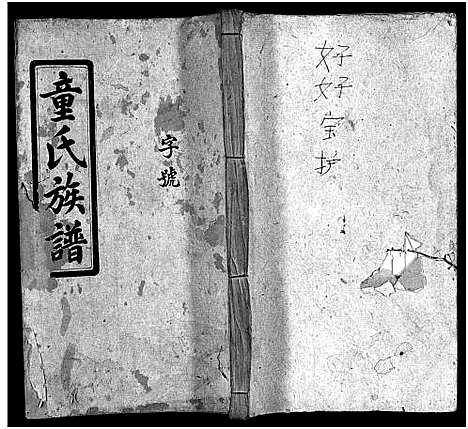 童氏族譜
字號
好好宝护